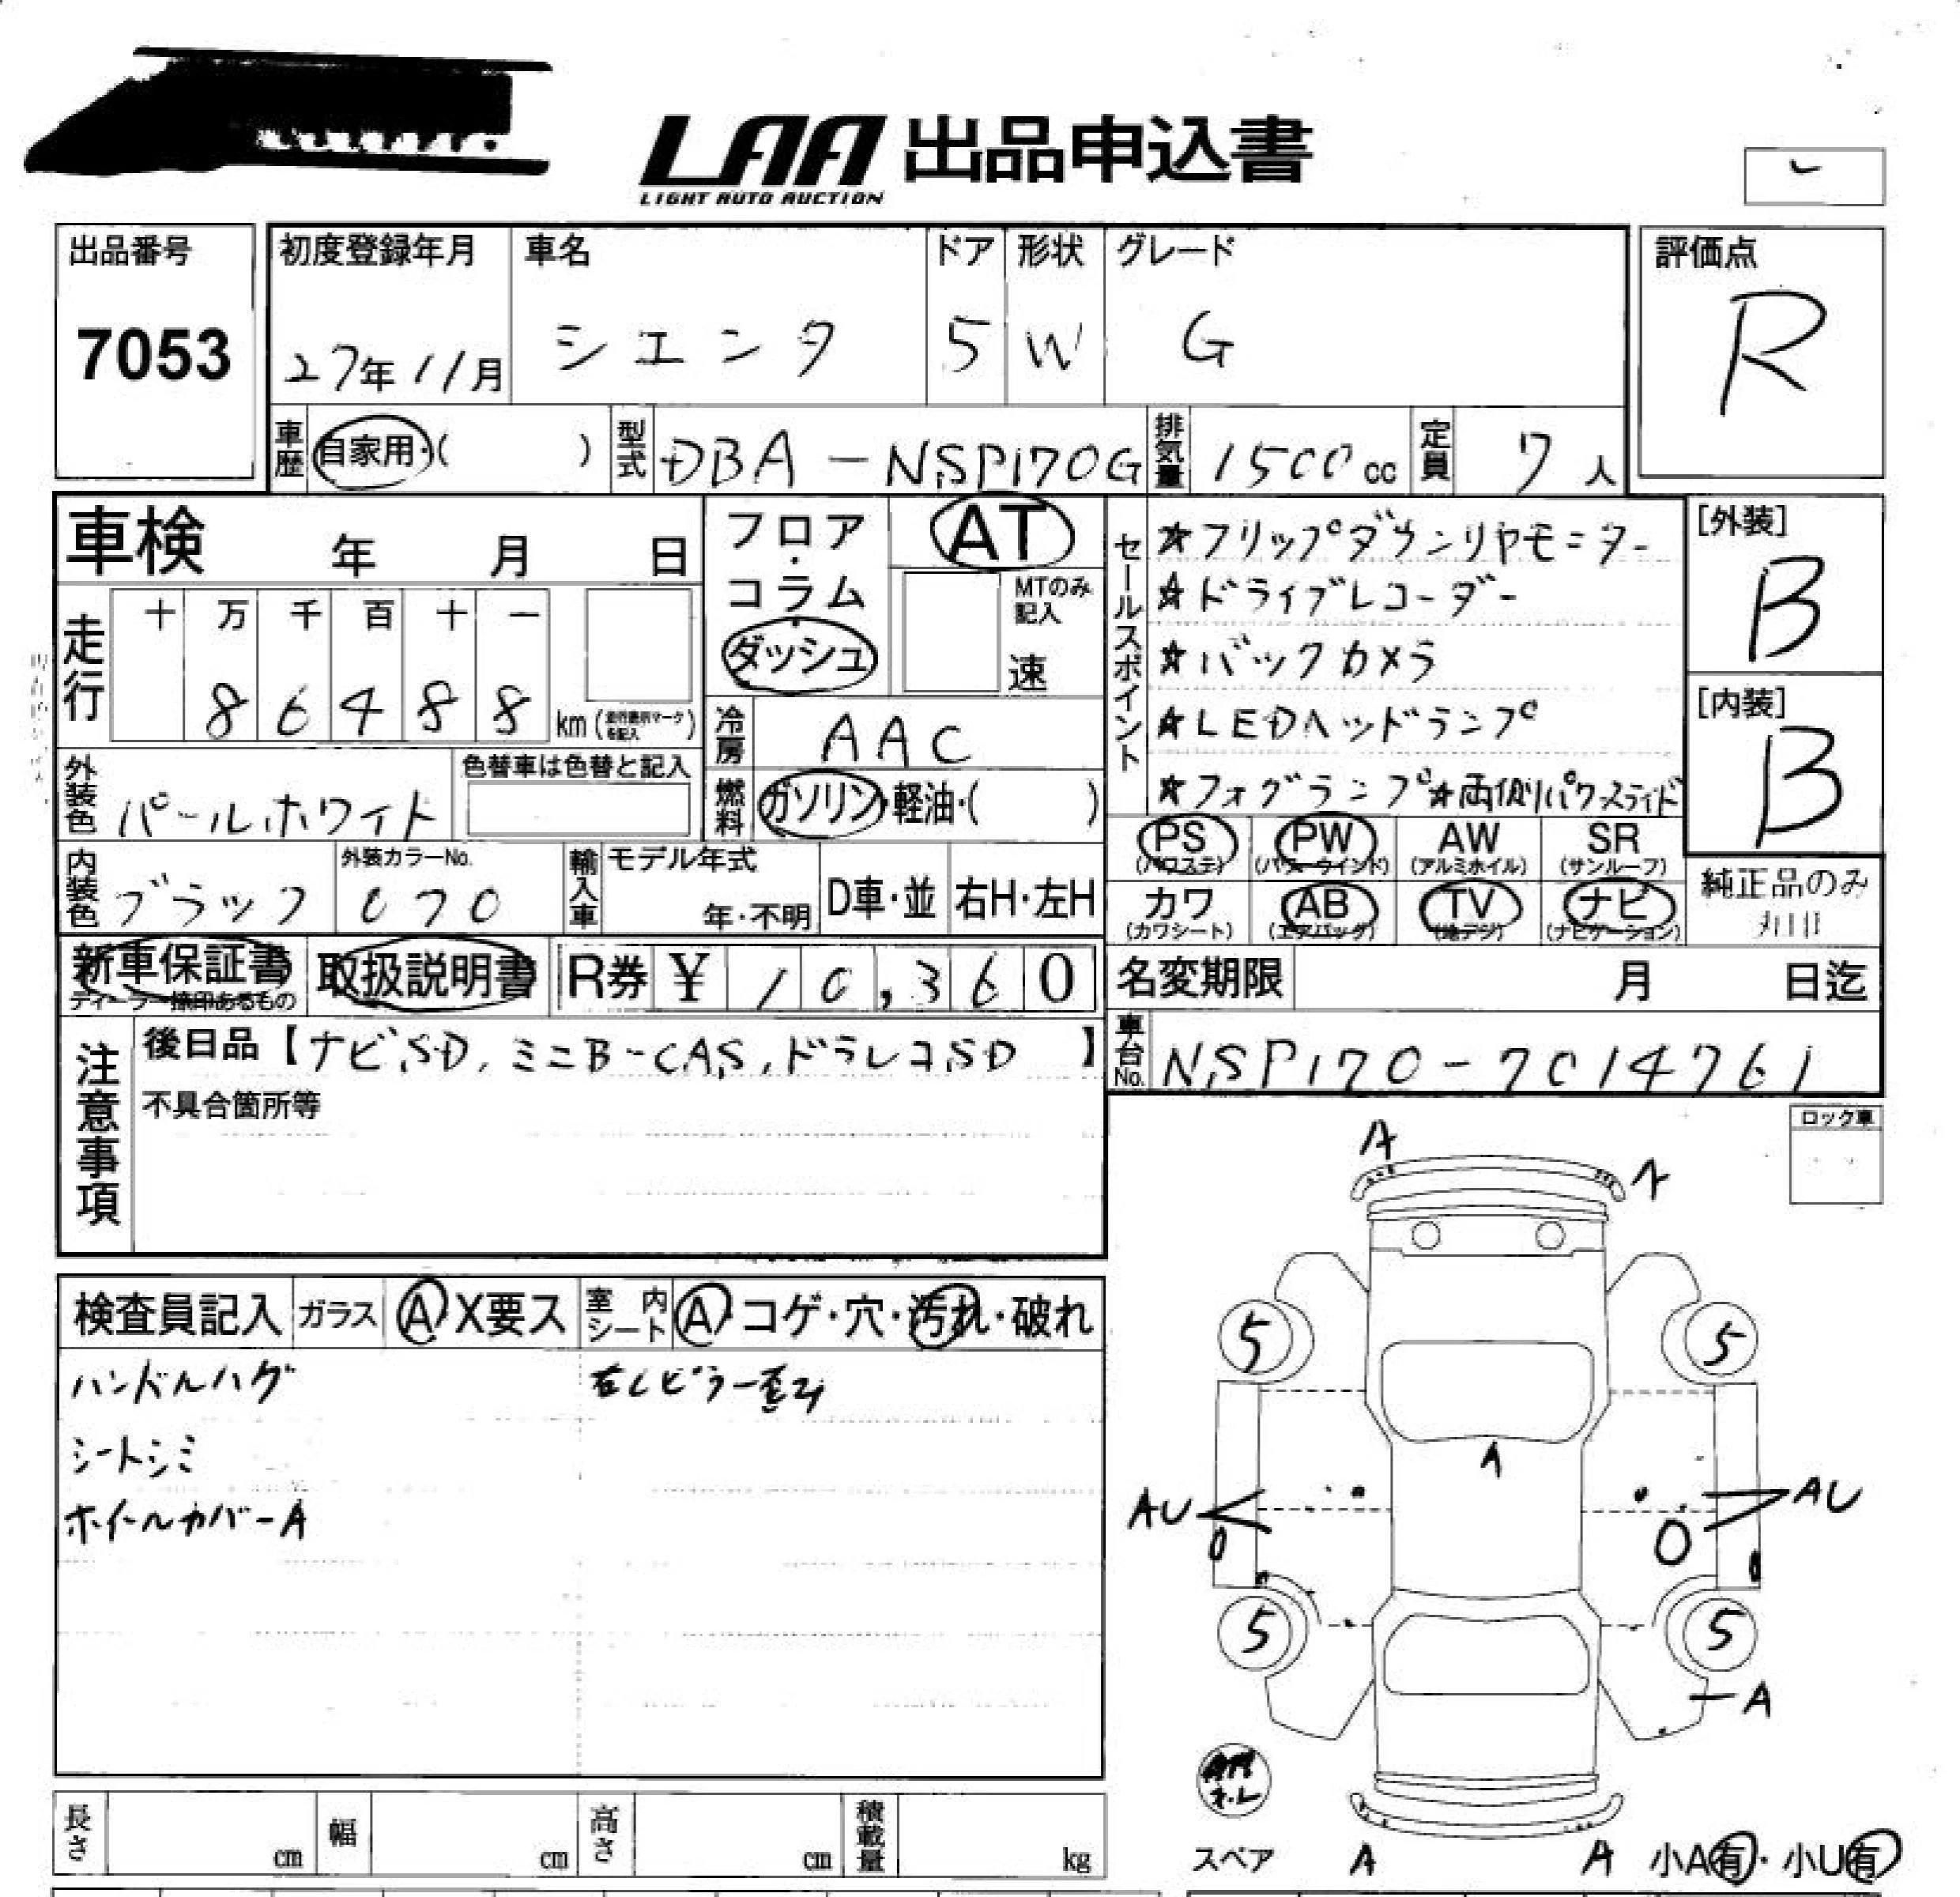 LAA 出品申込書
LIGHT AUTO AUCTION
出品番号
7053
初度登録年月
27年11月
車名
シエンタ
ドア
5
形状
W
グレード
G
評価点
R
車歴 自家用・( )
型式 DBA-NSP170G
排気量 1500cc
定員 7人
車検 年 月 日
走行
十 万 千 百 十 一
8 6 4 8 8 km(
フロア・コラム・ダッシュ
AT
MTのみ記入
速
冷房 AAC
燃料 ガソリン・軽油・( )
セールスポイント
★フリップダウンリヤモニター
★ドライブレコーダー
★バックカメラ
★LEDヘッドランプ
★フォグランプ★両側パワースライド
[外装]
B
[内装]
B
外装色 パールホワイト
色替車は色替と記入
内装色 ブラック
外装カラーNo.
070
輸入車 モデル年式
年・不明
D車・並 右H・左H
PS PW AW SR
(パワステ) (パワーウインド) (アルミホイル) (サンルーフ)
カワ AB TV ナビ
(カワシート) (エアバック) (地デジ) (ナビゲーション)
純正品のみ
新車保証書
ディーラー捺印あるもの
取扱説明書
R券 ¥ 10,360
名変期限 月 日迄
車台No. NSP170-7014761
注意事項
後日品【ナビSD,ミニB-CAS,ドラレコSD】
不具合箇所等
ロック車
検査員記入 ガラス A X要ス 室内シート A コゲ・穴・汚れ・破れ
ハンドルハゲ
右Cピラー歪ミ
シートシミ
ホイールカバーA
A
A
5
5
A
AU
AU
5
5
A
スペア
A
A
小A有・小U有
長さ cm 幅 cm 高さ cm 積載量 kg